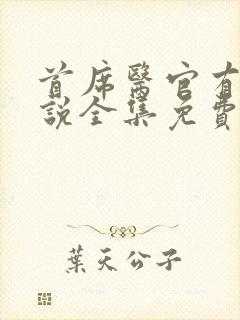 首席醫官有
說全集免費
葉天公子